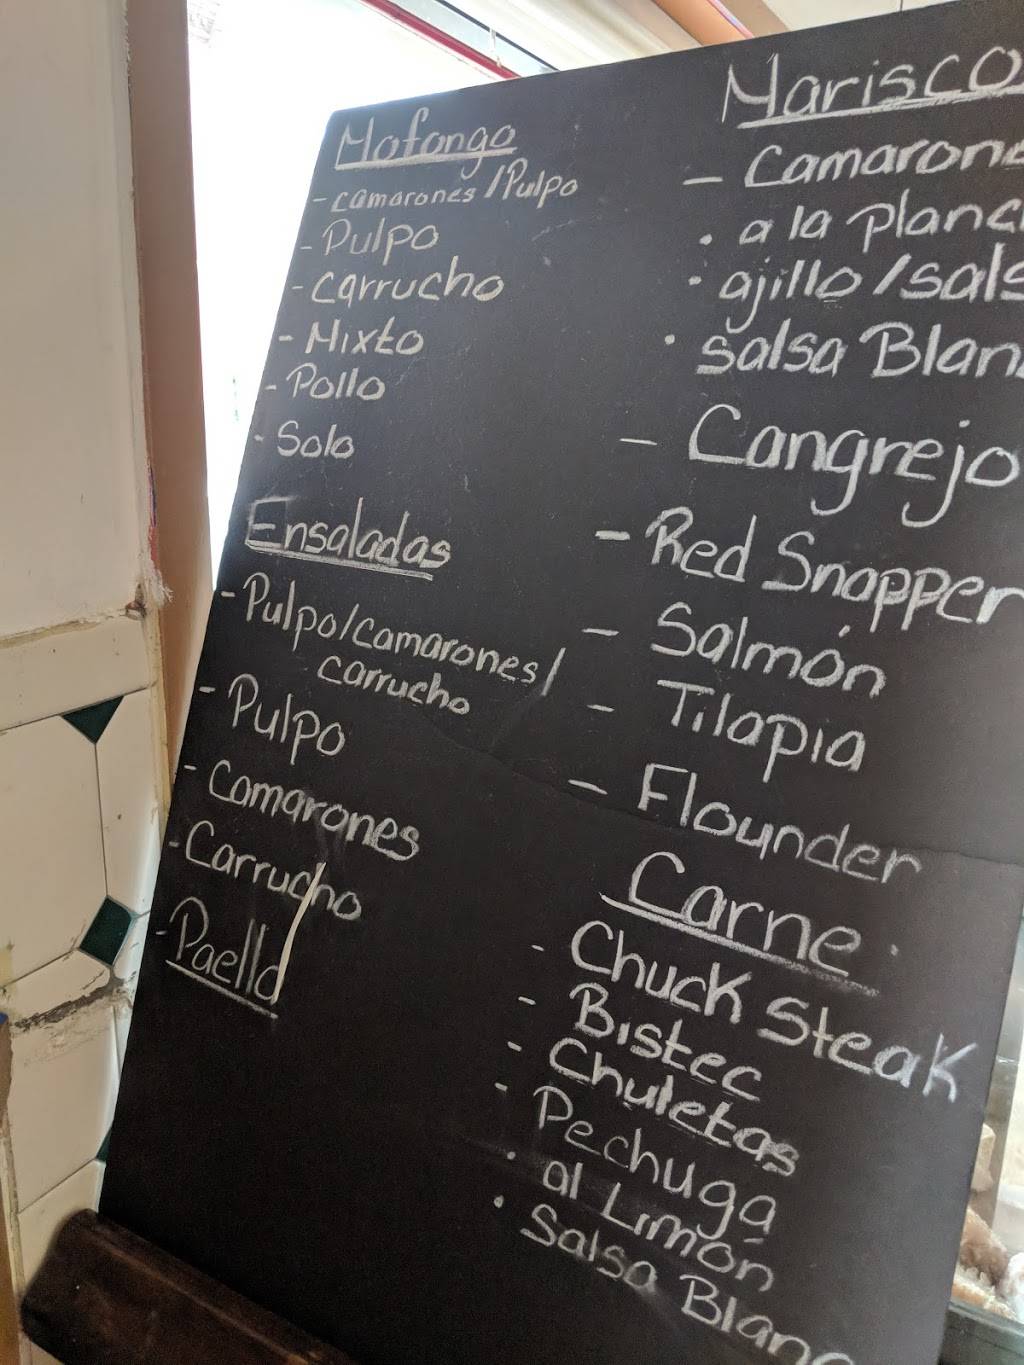 Mofongo
- camarones/Pulpo
- Pulpo
- carrucho
- Mixto
- Pollo
- Solo
Ensaladas
- Pulpo/camarones/
carrucho
- Pulpo
- Camarones
- Carrucho
- Paella
Marisco
- Camarone
• a la Planc
• ajillo/sals
• salsa Blan
- Cangrejo
- Red Snapper
- Salmón
- Tilapia
- Flounder
Carne
- Chuck Steak
- Bistec
- Chuletas
- Pechuga
• al Limón
• Salsa Blanc